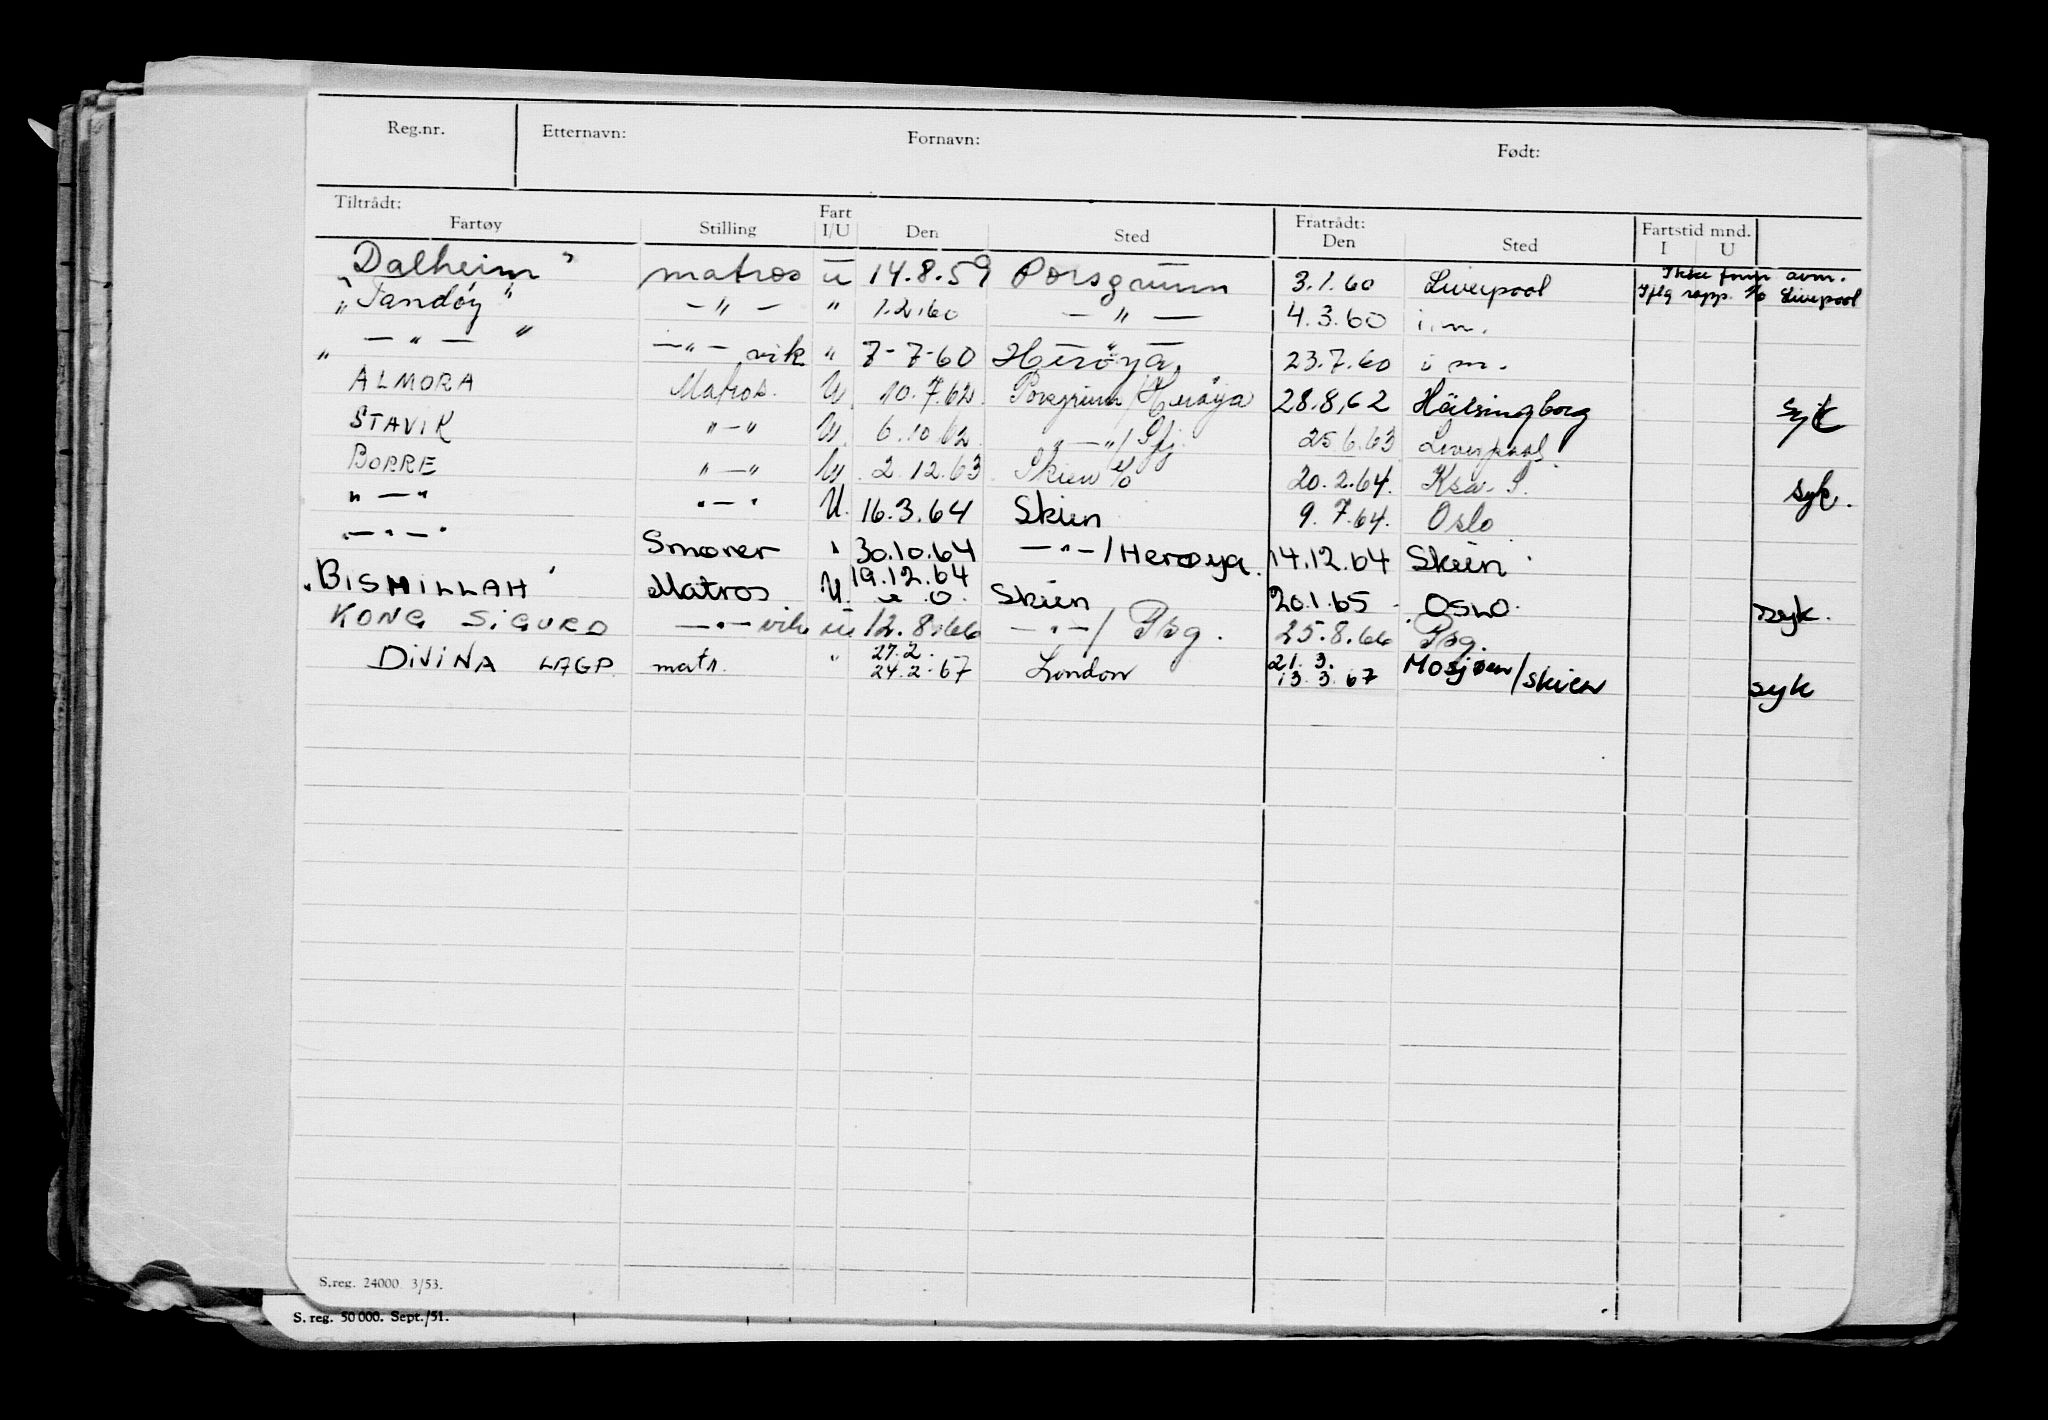 Reg.nr. Etternavn: Fornavn: Født:
Tiltrådt: Fartøy Stilling Fart I/U Den Sted Fratrådt: Den Sted Fartstid mnd. I U
"Dalheim" matros u 14.8.59 Porsgrunn 3.1.60 Liverpool Ikke form avm. Iflg rapp. f/o Liverpool
"Tandøy" — " — " 1.2.60 — " — 4.3.60 i.m.
" — " — " — " — vik " 7-7-60 Herøya 23.7.60 i m.
ALMORA Matros. U. 10.7.62. Porsgrunn/Herøya 28.8.62 Hälsingborg syk
STAVIK " — " U. 6.10.62. " — " / 25.6.63 Liverpool.
BORRE " — " U. 2.12.63 Skien 20.2.64. Ksa. S. syk.
" — " " — " U. 16.3.64 Skien 9.7.64. Oslo
— " — " Smører " 30.10.64 — " — / Herøya. 14.12.64 Skien
"BISMILLAH" Matros U. 19.12.64 Skien 20.1.65 OSLO. syk.
KONG SIGURD — " — vik u 12.8.66 — " — / Psg. 25.8.66 Psg.
DIVINA LAGP. matr. " 27.2. 24.2.67 London 21.3. 13.3.67 Mosjøen/skien syk
S.reg. 24000 3/53.
S. reg. 50000. Sept./51.